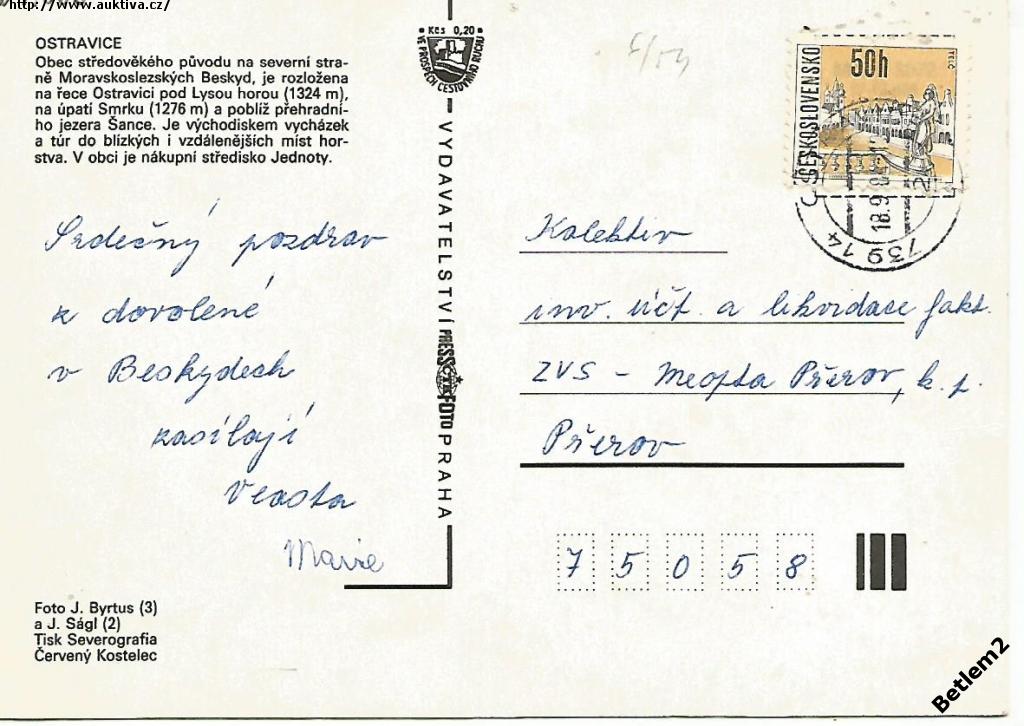 http://www.auktiva.cz/
OSTRAVICE
Obec středověkého původu na severní stra-
ně Moravskoslezských Beskyd, je rozložena
na řece Ostravici pod Lysou horou (1324 m),
na úpatí Smrku (1276 m) a poblíž přehradní-
ho jezera Šance. Je východiskem vycházek
a túr do blízkých i vzdálenějších míst hor-
stva. V obci je nákupní středisko Jednoty.
Srdečný pozdrav
z dovolené
v Beskydech
zasílají
Vlasta
Marie
Foto J. Byrtus (3)
a J. Ságl (2)
Tisk Severografia
Červený Kostelec
Kčs 0,20
VE PROSPĚCH CESTOVNÍHO RUCHU
VYDAVATELSTVÍ PRESSFOTO PRAHA
ČESKOSLOVENSKO
50h
TELČ
739 14
Kolektiv
inv. účt. a likvidace fakt.
ZVS - Meopta Přerov, k. p.
Přerov
75058
Betlem2